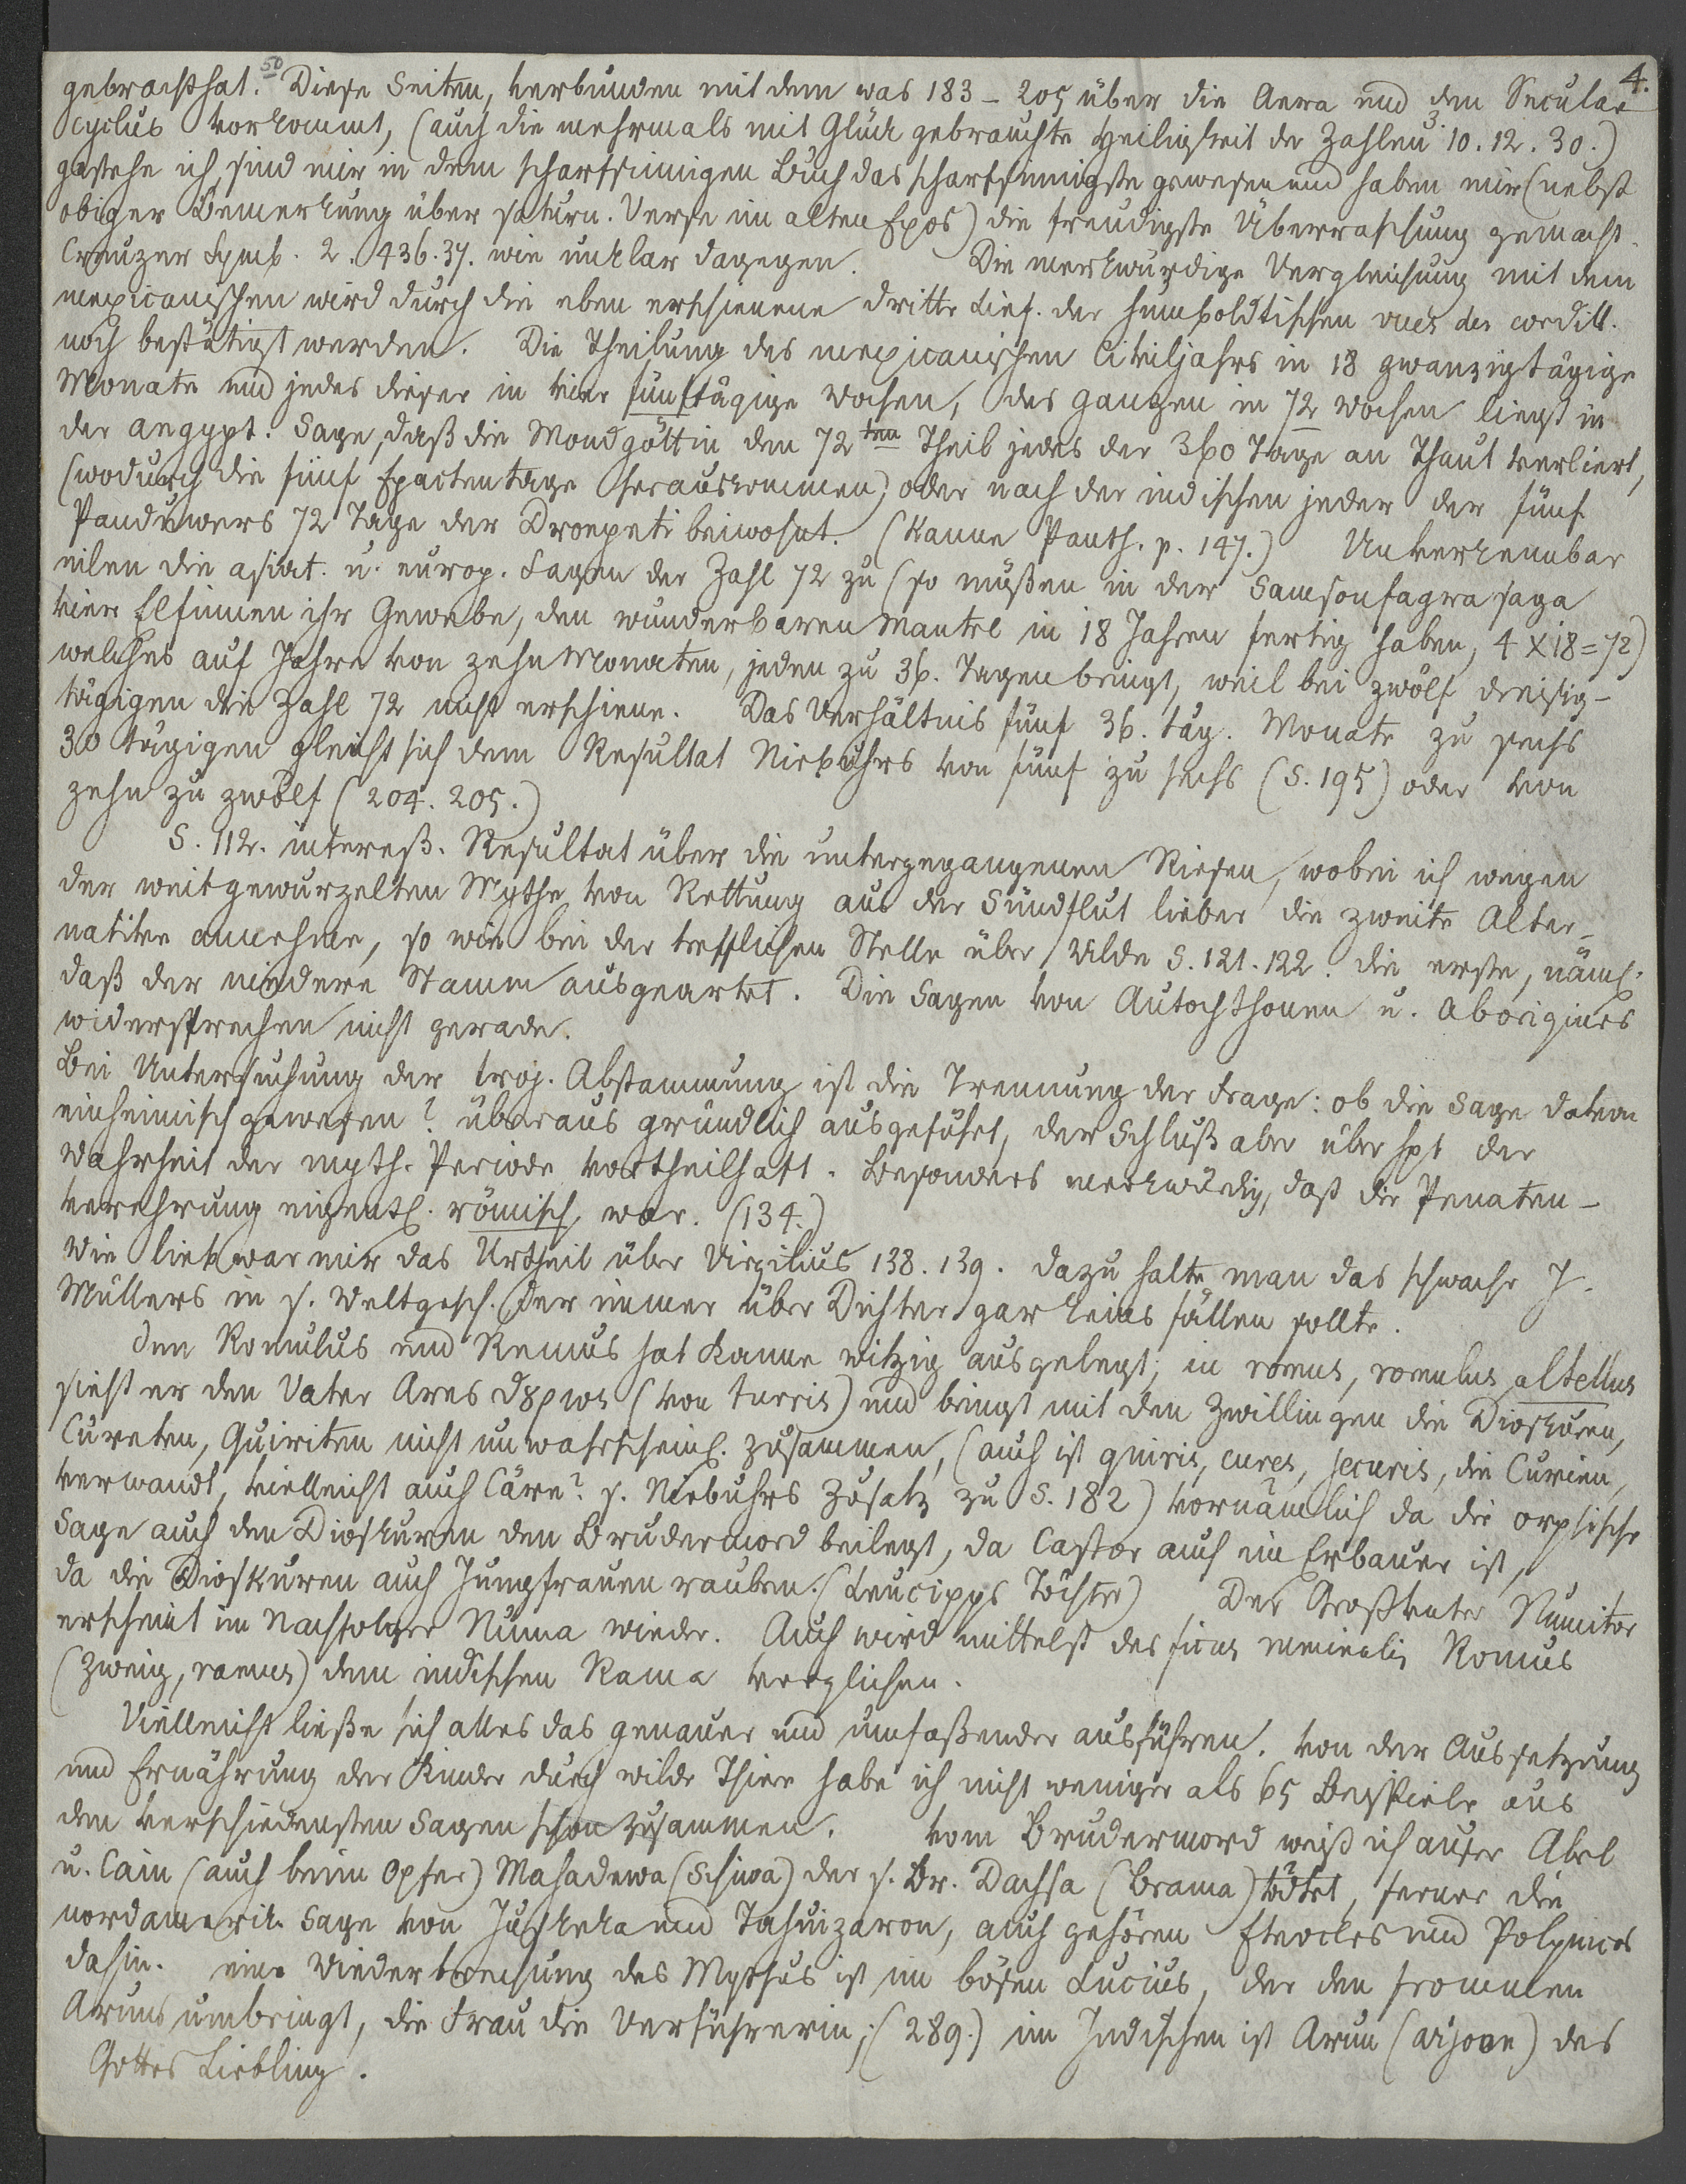 4.
50
gebracht hat. Diese Seiten, verbunden mit dem was 183 – 205 über die Aera und den Secular
cyclus vorkommt, (auch die mehrmals mit Glück gebrauchte Heiligkeit der Zahlen 3. 10. 12. 30.)
gestehe ich, sind mir in dem scharfsinnigen Buch das scharfsinnigste gewesen und haben mir (nebst
obiger Bemerkung über saturn. Verse im alten Epos) die freudigste Überraschung gemacht.
Creuzer Symb. 2. 436. 37. wie unklar dagegen. Die merkwürdige Vergleichung mit dem
mexicanischen wird durch die eben erschienene dritte Lief. der humboldtischen vues des cordill.
noch bestätigt werden. Die Theilung des mexicanischen Civiljahrs in 18 zwanzigtägige
Monate und jedes dieser in vier fünftägige Wochen, des ganzen in 72 Wochen liegt in
der aegypt. Sage, daß die Mondgöttin den 72ten Theil jedes der 360 Tage an Thaut verliert,
(wodurch die fünf Epactentage herauskommen) oder nach der indischen jeder der fünf
Panduwers 72 Tage der Droepeti beiwohnt. (Kanne Panth. p. 147.) Unverkennbar
eilen die asiat. u. europ. Sagen der Zahl 72 zu (so müßen in der Samsonfagra saga
vier Elfinnen ihr Gewebe, den wunderbaren Mantel in 18 Jahren fertig haben, 4 X 18 = 72)
welches auf Jahre von zehn Monaten, jeden zu 36. Tagen bringt, weil bei zwölf dreisig-
tägigen die Zahl 72 nicht erschiene. Das Verhältnis fünf 36. täg. Monate zu sechs
30 tägigen gleicht sich dem Resultat Niebuhrs von fünf zu sechs (S. 195) oder von
zehn zu zwölf (204. 205.)
S. 112. intereß. Resultat über die untergegangenen Riesen, wobei ich wegen
der weitgewurzelten Mythe von Rettung aus der Sündflut lieber die zweite Alter-
native annehme, so wie bei der trefflichen Stelle über Wilde S. 121. 122. die erste, näml.
daß der niedere Stamm ausgeartet. Die Sagen von Autochthonen u. Aborigines
widersprechen nicht gerade.
Bei Untersuchung der troj. Abstammung ist die Trennung der Frage: ob die Sage davon
einheimisch gewesen? überaus gründlich ausgeführt, der Schluß aber über hpt der
Wahrheit der myth. Periode vortheilhaft. Besonders merkwürdig, daß die Penaten-
verehrung eigentl. römisch war. (134.)
Wie lieb war mir das Urtheil über Virgilius 138. 139. dazu halte man das schwache J.
Müllers in s. Weltgesch. der immer über Dichter gar keins fällen sollte.
Den Romulus und Remus hat Kanne witzig ausgelegt; in romus, romulus, altellus
sieht er den Vater Ares (von turris) und bringt mit den Zwillingen die Dioskuren,
Cureten, Quiriten nicht unwahrscheinl. zusammen, (auch ist quiris, cures, securis, die Curien,
verwandt, vielleicht auch Cäre? s. Niebuhrs Zusatz zu S. 182) vornämlich da die orphische
Sage auch den Dioskuren den Brudermord beilegt, da Castor auch ein Erbauer ist,
da die Dioskuren auch Jungfrauen rauben. (Leucipps Töchter) Der Großvater Numitor
erscheint im Nachfolger Numa wieder. Auch wird mittelst des ficus ruminalis Romus
(Zweig, ramus) dem indischen Rama verglichen.
Vielleicht ließe sich alles das genauer und umfaßender ausführen. Von der Aussetzung
und Ernährung der Kinder durch wilde Thiere habe ich nicht weniger als 65 Beispiele aus
den verschiedensten Sagen schon zusammen. Vom Brudermord weiß ich auser Abel
u. Cain (auch beim Opfer) Mahadewa (Schiwa) der s. Br. Dachsa (Brama) tödtet, ferner die
nordamerik. Sage von Juskeka und Tahuizaron, auch gehören Eteocles und Polynices
dahin. eine Wiederbrechung des Mythus ist im bösen Lucius, der den frommen
Aruns umbringt, die Frau die Verführerin; (289.) im Indischen ist Arun (arjoon) des
Gottes Liebling.